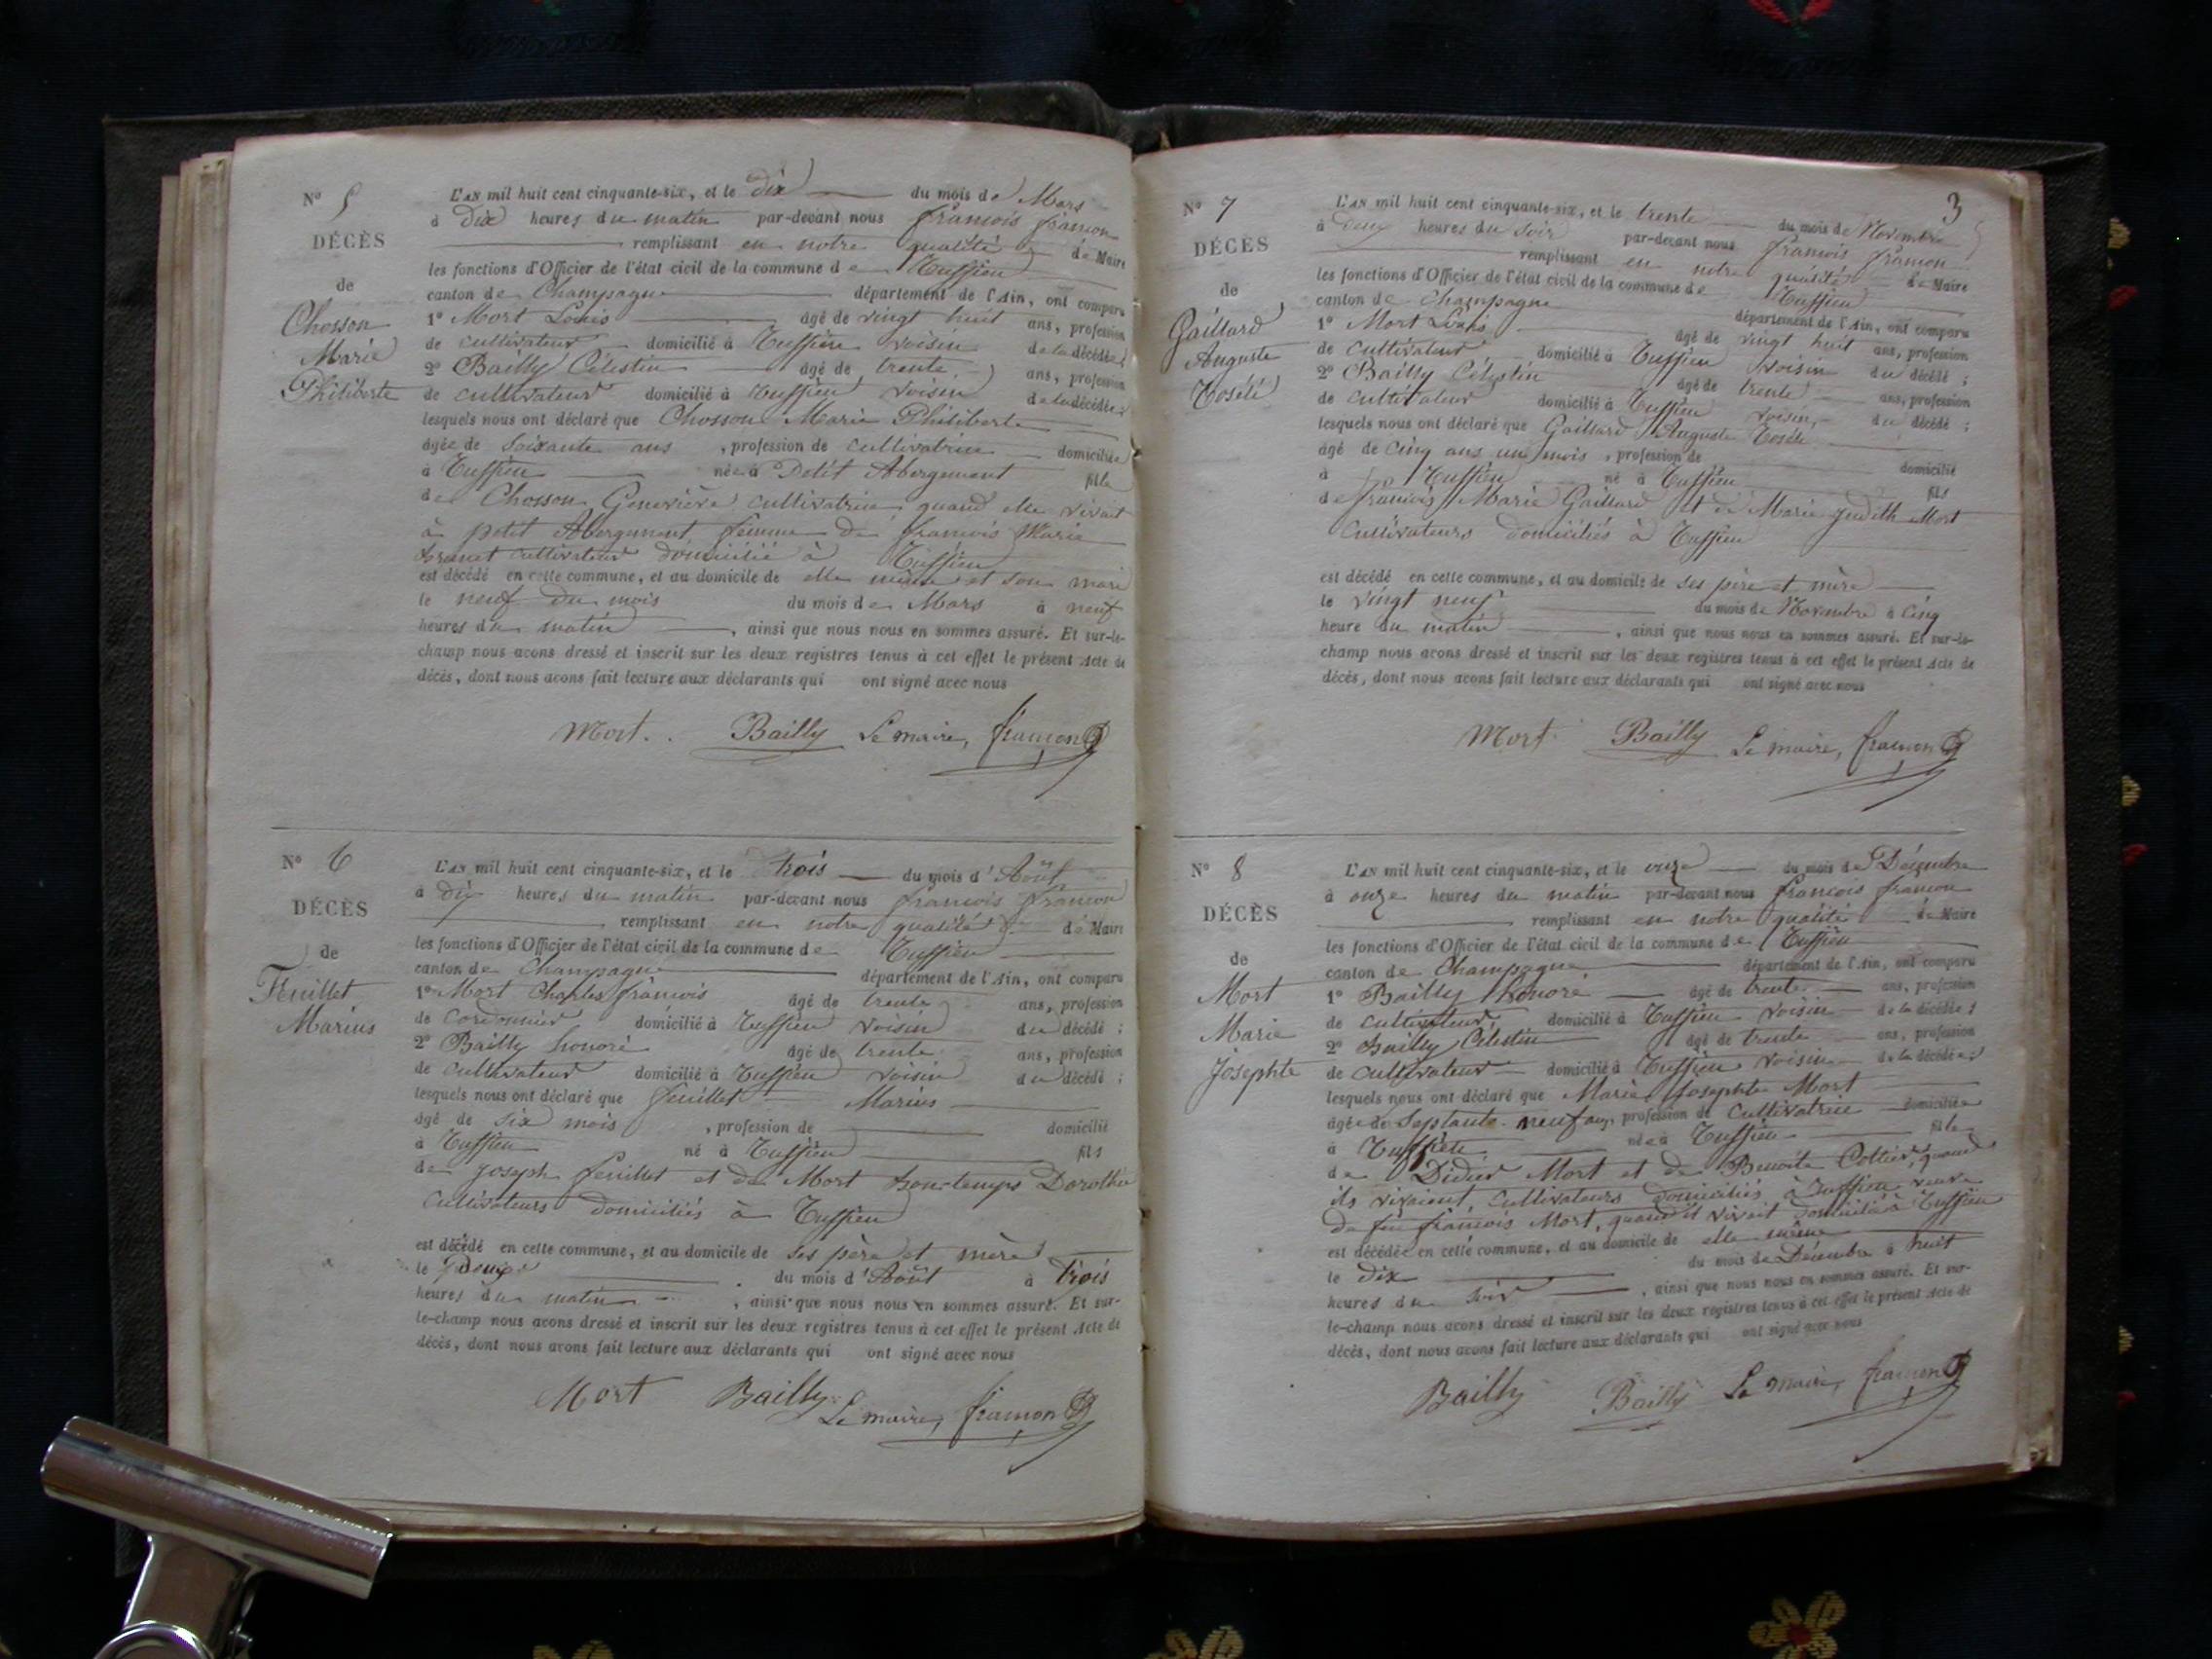 N° 5
DÉCÈS
de
Chosson
Marie
Philiberte
L'AN mil huit cent cinquante-six, et le dix du mois de Mars
à Dix heures du matin par-devant nous françois françon
remplissant en notre qualité de Maire
les fonctions d'Officier de l'état civil de la commune de
canton de Champagne département de l'Ain, ont comparu
1° Mort Louis âgé de vingt huit ans, profession
de cultivateur domicilié à voisin de la décédée;
2° Bailly Célestin âgé de trente ans, profession
de cultivateur domicilié à voisin de la décédée;
lesquels nous ont déclaré que Chosson Marie Philiberte
âgée de soixante ans, profession de cultivatrice domiciliée
à née à Petit Abergement fille
de Chosson Geneviève cultivatrice quand elle vivait
à petit Abergement femme de françois Marie
cultivateur domicilié à
est décédé en cette commune, et au domicile de elle même et son mari
le neuf du mois du mois de Mars à neuf
heures du matin, ainsi que nous nous en sommes assuré. Et sur-le-
champ nous avons dressé et inscrit sur les deux registres tenus à cet effet le présent Acte de
décès, dont nous avons fait lecture aux déclarants qui ont signé avec nous
Mort. Bailly Le maire, françon
N° 6
DÉCÈS
de
Feuillet
Marius
L'AN mil huit cent cinquante-six, et le trois du mois d'Août
à dix heures du matin par-devant nous françois françon
remplissant en notre qualité de Maire
les fonctions d'Officier de l'état civil de la commune de
canton de Champagne département de l'Ain, ont comparu
1° Mort Charles françois âgé de trente ans, profession
de cordonnier domicilié à voisin du décédé;
2° Bailly honoré âgé de trente ans, profession
de cultivateur domicilié à voisin du décédé;
lesquels nous ont déclaré que feuillet Marius
âgé de six mois, profession de domicilié
à né à fils
de Joseph feuillet et de Mort Dorothée
cultivateurs domiciliés à
est décédé en cette commune, et au domicile de ses père et mère
le Deux du mois d'Août à trois
heures du matin, ainsi que nous nous en sommes assuré. Et sur-
le-champ nous avons dressé et inscrit sur les deux registres tenus à cet effet le présent Acte de
décès, dont nous avons fait lecture aux déclarants qui ont signé avec nous
Mort Bailly
Le maire, françon
3
N° 7
DÉCÈS
de
Gaillard
Auguste
L'AN mil huit cent cinquante-six, et le trente du mois de Novembre
à deux heures du soir par-devant nous françois françon
remplissant en notre qualité de Maire
les fonctions d'Officier de l'état civil de la commune de
canton de Champagne département de l'Ain, ont comparu
1° Mort Louis âgé de vingt huit ans, profession
de cultivateur domicilié à voisin du décédé;
2° Bailly Célestin âgé de trente ans, profession
de cultivateur domicilié à voisin, du décédé;
lesquels nous ont déclaré que Gaillard Auguste
âgé de cinq ans un mois, profession de domicilié
à né à fils
de françois Marie Gaillard et de Marie Judith Mort
cultivateurs domiciliés à
est décédé en cette commune, et au domicile de ses père et mère
le vingt neuf du mois de Novembre à Cinq
heure du matin, ainsi que nous nous en sommes assuré. Et sur-le-
champ nous avons dressé et inscrit sur les deux registres tenus à cet effet le présent Acte de
décès, dont nous avons fait lecture aux déclarants qui ont signé avec nous
Mort Bailly Le maire, françon
N° 8
DÉCÈS
de
Mort
Marie
Josephte
L'AN mil huit cent cinquante-six, et le onze du mois de Décembre
à onze heures du matin par-devant nous françois françon
remplissant en notre qualité de Maire
les fonctions d'Officier de l'état civil de la commune de
canton de Champagne département de l'Ain, ont comparu
1° Bailly honoré âgé de trente ans, profession
de cultivateur, domicilié à voisin de la décédée;
2° Bailly Célestin âgé de trente ans, profession
de cultivateur domicilié à voisin de la décédée;
lesquels nous ont déclaré que Marie Josephte Mort
âgée de septante neuf ans, profession de cultivatrice domiciliée
à née à fille
de Didier Mort et de Benoite quand
ils vivaient, cultivateurs domiciliés à veuve
de feu françois Mort, quand il vivait domicilié à
est décédée en cette commune, et au domicile de elle même
le dix du mois de Décembre à huit
heures du soir, ainsi que nous nous en sommes assuré. Et sur-
le-champ nous avons dressé et inscrit sur les deux registres tenus à cet effet le présent Acte de
décès, dont nous avons fait lecture aux déclarants qui ont signé avec nous
Bailly Bailly Le maire, françon